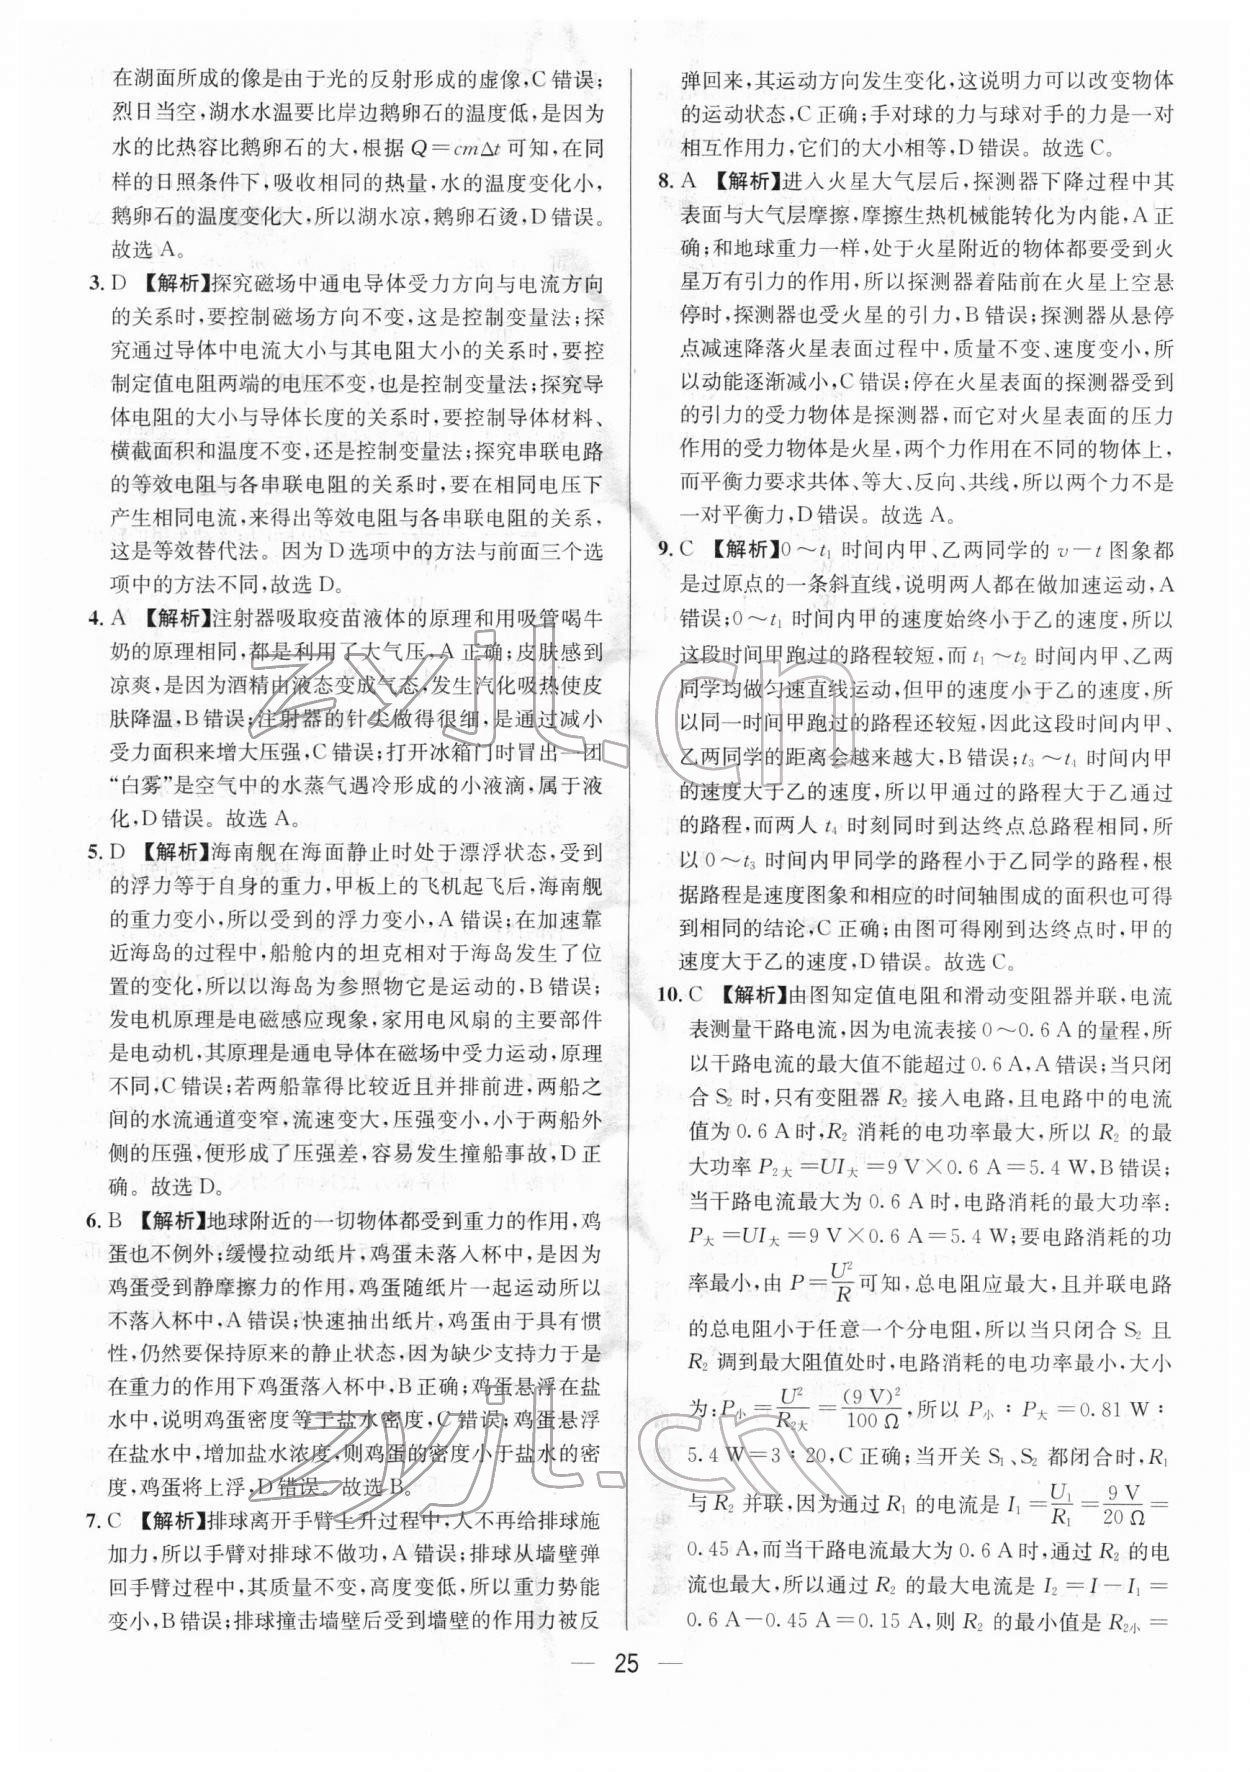 在湖面所成的像是由于光的反射形成的虚像,C错误;
烈日当空,湖水水温要比岸边鹅卵石的温度低,是因为
水的比热容比鹅卵石的大,根据 Q=cmΔt 可知,在同
样的日照条件下,吸收相同的热量,水的温度变化小,
鹅卵石的温度变化大,所以湖水凉,鹅卵石烫,D错误。
故选A。
3. D 【解析】探究磁场中通电导体受力方向与电流方向
的关系时,要控制磁场方向不变,这是控制变量法;探
究通过导体中电流大小与其电阻大小的关系时,要控
制定值电阻两端的电压不变,也是控制变量法;探究导
体电阻的大小与导体长度的关系时,要控制导体材料、
横截面积和温度不变,还是控制变量法;探究串联电路
的等效电阻与各串联电阻的关系时,要在相同电压下
产生相同电流,来得出等效电阻与各串联电阻的关系,
这是等效替代法。因为D选项中的方法与前面三个选
项中的方法不同,故选D。
4. A 【解析】注射器吸取疫苗液体的原理和用吸管喝牛
奶的原理相同,都是利用了大气压,A正确;皮肤感到
凉爽,是因为酒精由液态变成气态,发生汽化吸热使皮
肤降温,B错误;注射器的针尖做得很细,是通过减小
受力面积来增大压强,C错误;打开冰箱门时冒出一团
“白雾”是空气中的水蒸气遇冷形成的小液滴,属于液
化,D错误。故选A。
5. D 【解析】海南舰在海面静止时处于漂浮状态,受到
的浮力等于自身的重力,甲板上的飞机起飞后,海南舰
的重力变小,所以受到的浮力变小,A错误;在加速靠
近海岛的过程中,船舱内的坦克相对于海岛发生了位
置的变化,所以以海岛为参照物它是运动的,B错误;
发电机原理是电磁感应现象,家用电风扇的主要部件
是电动机,其原理是通电导体在磁场中受力运动,原理
不同,C错误;若两船靠得比较近且并排前进,两船之
间的水流通道变窄,流速变大,压强变小,小于两船外
侧的压强,便形成了压强差,容易发生撞船事故,D正
确。故选D。
6. B 【解析】地球附近的一切物体都受到重力的作用,鸡
蛋也不例外;缓慢拉动纸片,鸡蛋未落入杯中,是因为
鸡蛋受到静摩擦力的作用,鸡蛋随纸片一起运动所以
不落入杯中,A错误;快速抽出纸片,鸡蛋由于具有惯
性,仍然要保持原来的静止状态,因为缺少支持力于是
在重力的作用下鸡蛋落入杯中,B正确;鸡蛋悬浮在盐
水中,说明鸡蛋密度等于盐水密度,C错误;鸡蛋悬浮
在盐水中,增加盐水浓度,则鸡蛋的密度小于盐水的密
度,鸡蛋将上浮,D错误。故选B。
7. C 【解析】排球离开手臂上升过程中,人不再给排球施
加力,所以手臂对排球不做功,A错误;排球从墙壁弹
回手臂过程中,其质量不变,高度变低,所以重力势能
变小,B错误;排球撞击墙壁后受到墙壁的作用力被反
弹回来,其运动方向发生变化,这说明力可以改变物体
的运动状态,C正确;手对球的力与球对手的力是一对
相互作用力,它们的大小相等,D错误。故选C。
8. A 【解析】进入火星大气层后,探测器下降过程中其
表面与大气层摩擦,摩擦生热机械能转化为内能,A正
确;和地球重力一样,处于火星附近的物体都要受到火
星万有引力的作用,所以探测器着陆前在火星上空悬
停时,探测器也受火星的引力,B错误;探测器从悬停
点减速降落火星表面过程中,质量不变、速度变小,所
以动能逐渐减小,C错误;停在火星表面的探测器受到
的引力的受力物体是探测器,而它对火星表面的压力
作用的受力物体是火星,两个力作用在不同的物体上,
而平衡力要求共体、等大、反向、共线,所以两个力不是
一对平衡力,D错误。故选A。
9. C 【解析】0～t₁ 时间内甲、乙两同学的 v－t 图象都
是过原点的一条斜直线,说明两人都在做加速运动,A
错误;0～t₁ 时间内甲的速度始终小于乙的速度,所以
这段时间甲跑过的路程较短,而 t₁～t₂ 时间内甲、乙两
同学均做匀速直线运动,但甲的速度小于乙的速度,所
以同一时间甲跑过的路程还较短,因此这段时间内甲、
乙两同学的距离会越来越大,B错误;t₃～t₄ 时间内甲
的速度大于乙的速度,所以甲通过的路程大于乙通过
的路程,而两人 t₄ 时刻同时到达终点总路程相同,所
以 0～t₃ 时间内甲同学的路程小于乙同学的路程,根
据路程是速度图象和相应的时间轴围成的面积也可得
到相同的结论,C正确;由图可得刚到达终点时,甲的
速度大于乙的速度,D错误。故选C。
10. C 【解析】由图知定值电阻和滑动变阻器并联,电流
表测量干路电流,因为电流表接 0～0.6 A 的量程,所
以干路电流的最大值不能超过 0.6 A,A错误;当只闭
合 S₂ 时,只有变阻器 R₂ 接入电路,且电路中的电流
值为 0.6 A 时,R₂ 消耗的电功率最大,所以 R₂ 的最
大功率 P₂大=UI大=9 V×0.6 A=5.4 W,B错误;
当干路电流最大为 0.6 A 时,电路消耗的最大功率:
P大=UI大=9 V×0.6 A=5.4 W;要电路消耗的功
率最小,由 P=U²/R 可知,总电阻应最大,且并联电路
的总电阻小于任意一个分电阻,所以当只闭合 S₂ 且
R₂ 调到最大阻值处时,电路消耗的电功率最小,大小
为:P小=U²/R₂大=(9 V)²/100 Ω,所以 P小∶P大=0.81 W∶
5.4 W=3∶20,C正确;当开关 S₁、S₂ 都闭合时,R₁
与 R₂ 并联,因为通过 R₁ 的电流是 I₁=U₁/R₁=9 V/20 Ω=
0.45 A,而当干路电流最大为 0.6 A 时,通过 R₂ 的电
流也最大,所以通过 R₂ 的最大电流是 I₂=I－I₁=
0.6 A－0.45 A=0.15 A,则 R₂ 的最小值是 R₂小=
— 25 —
zyjl.cn
zyjl.cn